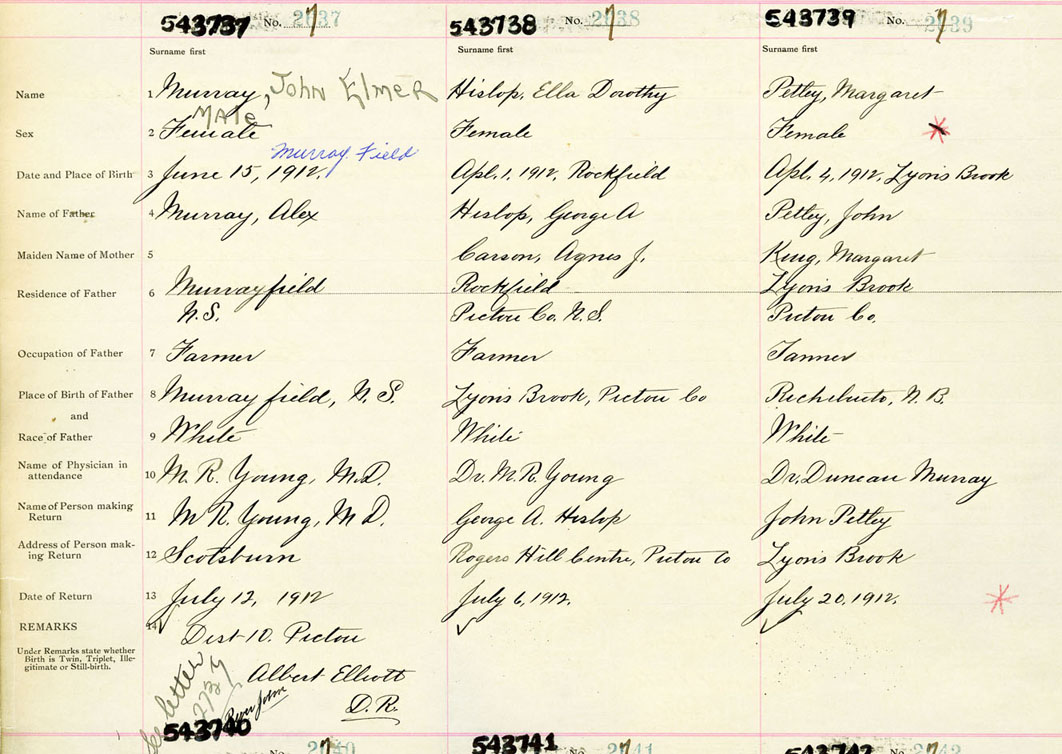 543737 No. 2037 7
543738 No. 2038 7
543739 No. 2039 7
Surname first Surname first Surname first
Name 1 Murray, John Elmer Hislop, Ella Dorothy Petley, Margaret
Male
Sex 2 Female Female Female
Murray Field
Date and Place of Birth 3 June 15, 1912. Apl. 1. 1912, Rockfield Apl. 4, 1912, Lyons Brook
Name of Father 4 Murray, Alex Hislop, George A Petley, John
Maiden Name of Mother 5 Carson, Agnes J. King, Margaret
Residence of Father 6 Murrayfield Rockfield Lyons Brook
N.S. Pictou Co. N.S. Pictou Co.
Occupation of Father 7 Farmer Farmer Tanner
Place of Birth of Father 8 Murrayfield, N.S. Lyons Brook, Pictou Co Richebucto, N.B.
and
Race of Father 9 White White White
Name of Physician in
attendance 10 M. R. Young, M.D. Dr. M. R. Young Dr. Duncan Murray
Name of Person making
Return 11 M R. Young, M D. George A. Hislop John Petley
Address of Person mak-
ing Return 12 Scotsburn Rogers Hill Centre, Pictou Co Lyons Brook
Date of Return 13 July 12, 1912 July 6, 1912. July 20, 1912.
REMARKS 14 Dist 10. Pictou
Under Remarks state whether
Birth is Twin, Triplet, Ille-
gitimate or Still-birth.
Albert Elliott
D.R.
See letter
River John
543740 No. 2040 7
543741 No. 2041 7
543742 No. 2042 7